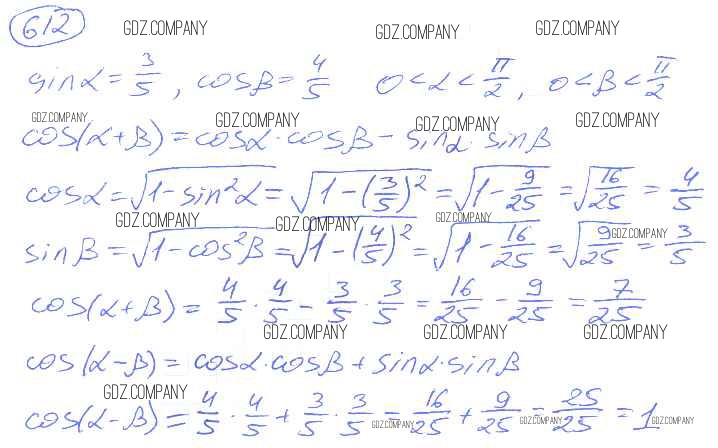 612 GDZ.COMPANY GDZ.COMPANY GDZ.COMPANY
sinα = 3/5, cosβ = 4/5 0<α<π/2, 0<β<π/2
GDZ.COMPANY GDZ.COMPANY GDZ.COMPANY GDZ.COMPANY
cos(α+β) = cosα·cosβ − sinα·sinβ
cosα = √(1−sin²α) = √(1−(3/5)²) = √(1−9/25) = √(16/25) = 4/5
GDZ.COMPANY GDZ.COMPANY GDZ.COMPANY GDZ.COMPANY
sinβ = √(1−cos²β) = √(1−(4/5)²) = √(1−16/25) = √(9/25) = 3/5
cos(α+β) = 4/5·4/5 − 3/5·3/5 = 16/25 − 9/25 = 7/25
GDZ.COMPANY GDZ.COMPANY GDZ.COMPANY
cos(α−β) = cosα·cosβ + sinα·sinβ
GDZ.COMPANY
cos(α−β) = 4/5·4/5 + 3/5·3/5 = 16/25 + 9/25 = 25/25 = 1
GDZ.COMPANY GDZ.COMPANY GDZ.COMPANY